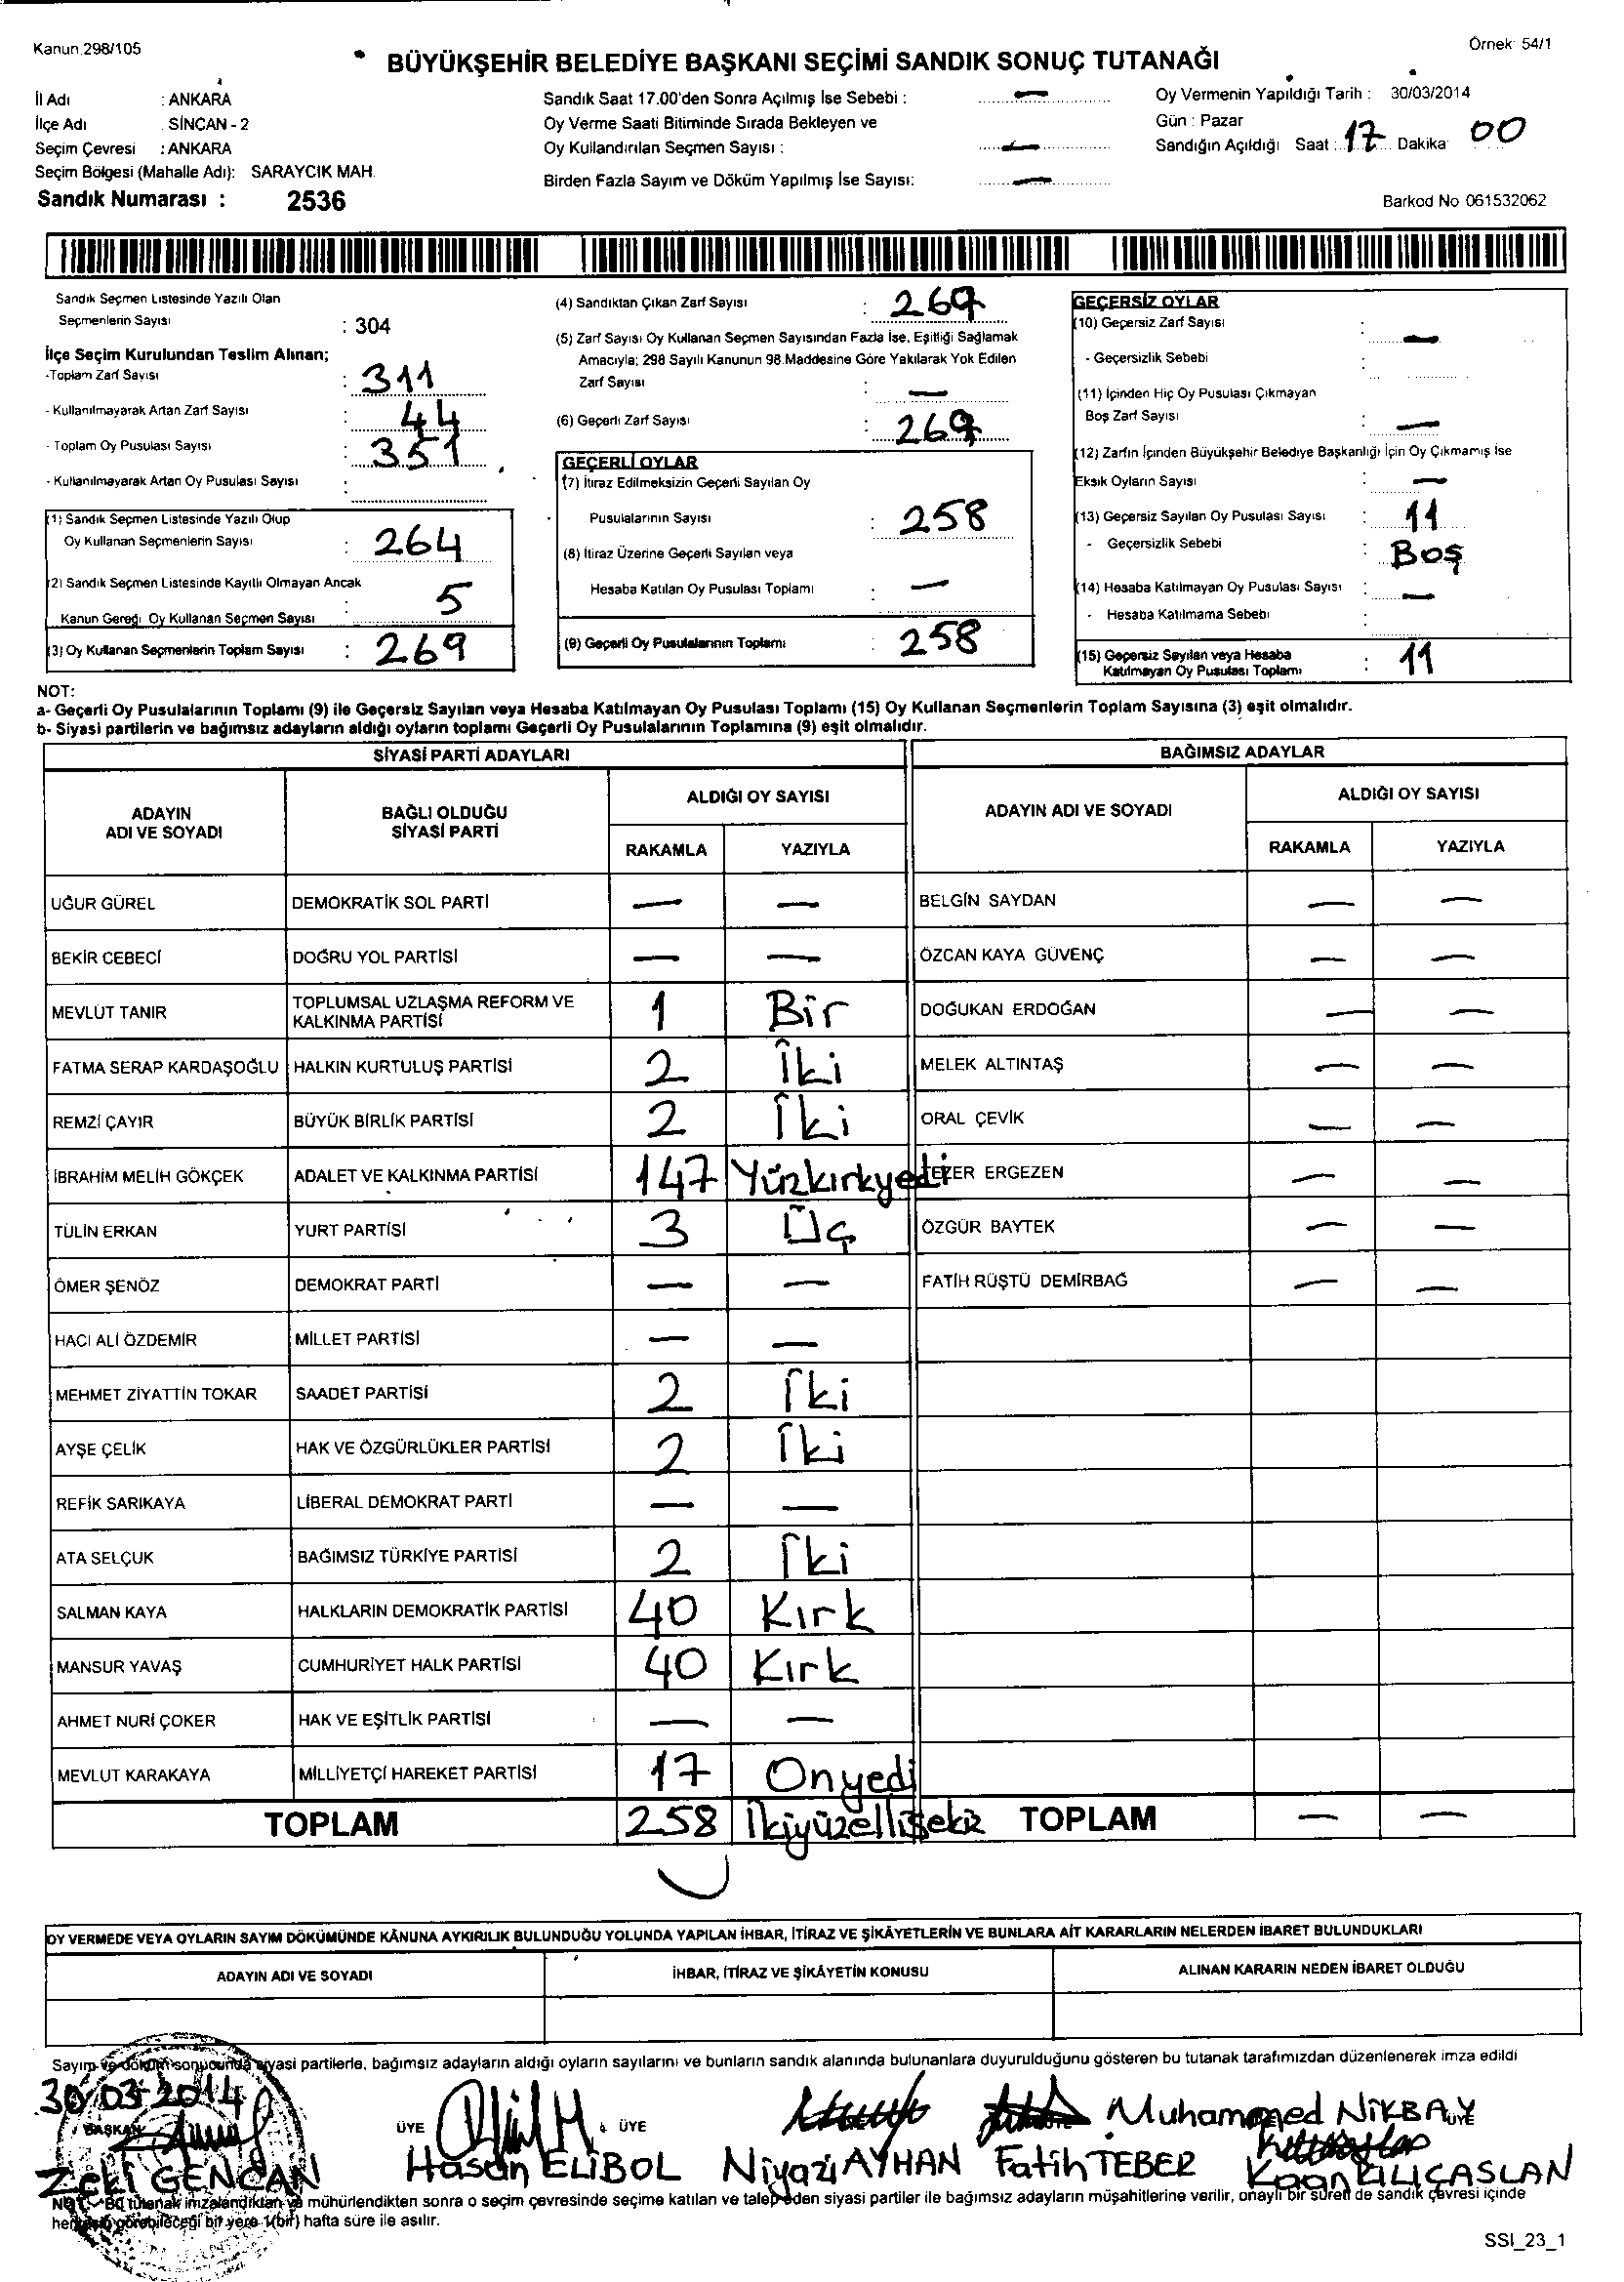 Kanun 298/105
Örnek 54/1
BÜYÜKŞEHİR BELEDİYE BAŞKANI SEÇİMİ SANDIK SONUÇ TUTANAĞI
İl Adı : ANKARA
İlçe Adı SİNCAN - 2
Seçim Çevresi : ANKARA
Seçim Bölgesi (Mahalle Adı): SARAYCIK MAH.
Sandık Numarası : 2536
Sandık Saat 17.00'den Sonra Açılmış İse Sebebi : —
Oy Verme Saati Bitiminde Sırada Bekleyen ve
Oy Kullandırılan Seçmen Sayısı : —
Birden Fazla Sayım ve Döküm Yapılmış İse Sayısı: —
Oy Vermenin Yapıldığı Tarih : 30/03/2014
Gün : Pazar
Sandığın Açıldığı Saat : 17 Dakika 00
Barkod No 061532062
Sandık Seçmen Listesinde Yazılı Olan
Seçmenlerin Sayısı : 304
İlçe Seçim Kurulundan Teslim Alınan;
-Toplam Zarf Sayısı : 311
- Kullanılmayarak Artan Zarf Sayısı : 44
- Toplam Oy Pusulası Sayısı : 351
- Kullanılmayarak Artan Oy Pusulası Sayısı :
(1) Sandık Seçmen Listesinde Yazılı Olup
Oy Kullanan Seçmenlerin Sayısı : 264
(2) Sandık Seçmen Listesinde Kayıtlı Olmayan Ancak
Kanun Gereği Oy Kullanan Seçmen Sayısı : 5
(3) Oy Kullanan Seçmenlerin Toplam Sayısı : 269
(4) Sandıktan Çıkan Zarf Sayısı : 269
(5) Zarf Sayısı Oy Kullanan Seçmen Sayısından Fazla İse, Eşitliği Sağlamak
Amacıyla; 298 Sayılı Kanunun 98.Maddesine Göre Yakılarak Yok Edilen
Zarf Sayısı : —
(6) Geçerli Zarf Sayısı : 269
GEÇERLİ OYLAR
(7) İtiraz Edilmeksizin Geçerli Sayılan Oy
Pusulalarının Sayısı : 258
(8) İtiraz Üzerine Geçerli Sayılan veya
Hesaba Katılan Oy Pusulası Toplamı : —
(9) Geçerli Oy Pusulalarının Toplamı : 258
GEÇERSİZ OYLAR
(10) Geçersiz Zarf Sayısı : —
- Geçersizlik Sebebi :
(11) İçinden Hiç Oy Pusulası Çıkmayan
Boş Zarf Sayısı : —
(12) Zarfın İçinden Büyükşehir Belediye Başkanlığı İçin Oy Çıkmamış İse
Eksik Oyların Sayısı : —
(13) Geçersiz Sayılan Oy Pusulası Sayısı : 11
- Geçersizlik Sebebi : Boş
(14) Hesaba Katılmayan Oy Pusulası Sayısı : —
- Hesaba Katılmama Sebebi :
(15) Geçersiz Sayılan veya Hesaba
Katılmayan Oy Pusulası Toplamı : 11
NOT:
a- Geçerli Oy Pusulalarının Toplamı (9) ile Geçersiz Sayılan veya Hesaba Katılmayan Oy Pusulası Toplamı (15) Oy Kullanan Seçmenlerin Toplam Sayısına (3) eşit olmalıdır.
b- Siyasi partilerin ve bağımsız adayların aldığı oyların toplamı Geçerli Oy Pusulalarının Toplamına (9) eşit olmalıdır.
SİYASİ PARTİ ADAYLARI
BAĞIMSIZ ADAYLAR
ADAYIN
ADI VE SOYADI
BAĞLI OLDUĞU
SİYASİ PARTİ
ALDIĞI OY SAYISI
RAKAMLA YAZIYLA
ADAYIN ADI VE SOYADI
ALDIĞI OY SAYISI
RAKAMLA YAZIYLA
UĞUR GÜREL DEMOKRATİK SOL PARTİ — — BELGİN SAYDAN — —
BEKİR CEBECİ DOĞRU YOL PARTİSİ — — ÖZCAN KAYA GÜVENÇ — —
MEVLÜT TANIR TOPLUMSAL UZLAŞMA REFORM VE KALKINMA PARTİSİ 1 Bir DOĞUKAN ERDOĞAN — —
FATMA SERAP KARDAŞOĞLU HALKIN KURTULUŞ PARTİSİ 2 İki MELEK ALTINTAŞ — —
REMZİ ÇAYIR BÜYÜK BİRLİK PARTİSİ 2 İki ORAL ÇEVİK — —
İBRAHİM MELİH GÖKÇEK ADALET VE KALKINMA PARTİSİ 147 Yüzkırkyedi ERGEZEN — —
TÜLİN ERKAN YURT PARTİSİ 3 Üç ÖZGÜR BAYTEK — —
ÖMER ŞENÖZ DEMOKRAT PARTİ — — FATİH RÜŞTÜ DEMİRBAĞ — —
HACI ALİ ÖZDEMİR MİLLET PARTİSİ — —
MEHMET ZİYATTİN TOKAR SAADET PARTİSİ 2 İki
AYŞE ÇELİK HAK VE ÖZGÜRLÜKLER PARTİSİ 2 İki
REFİK SARIKAYA LİBERAL DEMOKRAT PARTİ — —
ATA SELÇUK BAĞIMSIZ TÜRKİYE PARTİSİ 2 İki
SALMAN KAYA HALKLARIN DEMOKRATİK PARTİSİ 40 Kırk
MANSUR YAVAŞ CUMHURİYET HALK PARTİSİ 40 Kırk
AHMET NURİ ÇOKER HAK VE EŞİTLİK PARTİSİ — —
MEVLUT KARAKAYA MİLLİYETÇİ HAREKET PARTİSİ 17 Onyedi
TOPLAM 258 İkiyüzellisekiz TOPLAM — —
OY VERMEDE VEYA OYLARIN SAYIM DÖKÜMÜNDE KÂNUNA AYKIRILIK BULUNDUĞU YOLUNDA YAPILAN İHBAR, İTİRAZ VE ŞİKÂYETLERİN VE BUNLARA AİT KARARLARIN NELERDEN İBARET BULUNDUKLARI
ADAYIN ADI VE SOYADI İHBAR, İTİRAZ VE ŞİKÂYETİN KONUSU ALINAN KARARIN NEDEN İBARET OLDUĞU
Sayım ve döküm sonucunda siyasi partilerle, bağımsız adayların aldığı oyların sayılarını ve bunların sandık alanında bulunanlara duyurulduğunu gösteren bu tutanak tarafımızdan düzenlenerek imza edildi
30/03-2014
BAŞKAN ÜYE ÜYE Muhammed NİKBAY ÜYE
Zeki GENCAN Hasan ELİBOL Niyazi AYHAN Fatih TEBER Kaan KILIÇASLAN
NOT: Bu tutanak imzalandıktan ve mühürlendikten sonra o seçim çevresinde seçime katılan ve talep eden siyasi partiler ile bağımsız adayların müşahitlerine verilir, onaylı bir sureti de sandık çevresi içinde
herkesin görebileceği bir yere 1(bir) hafta süre ile asılır.
SSI_23_1